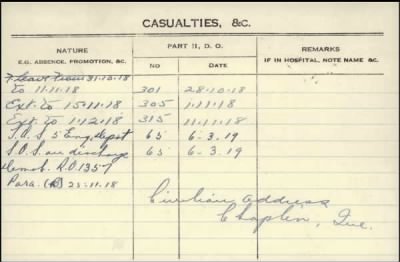 CASUALTIES, &C.
NATURE
E.G. ABSENCE, PROMOTION, &C.
PART II, D. O.
NO
DATE
REMARKS
IF IN HOSPITAL, NOTE NAME &C.
Leave From 31·10·18
To 11·11·18 301 28·10·18
Ext. to 15·11·18 305 1·11·18
Ext. to 1·12·18 315 11·11·18
T.O.S 5 Eng. depot 65 6-3.19
S.O.S. on discharge 65 6-3.19
Demob. R.O 1357
Para. (B) 25·11·18
Civilian address
Chaplin, Que.